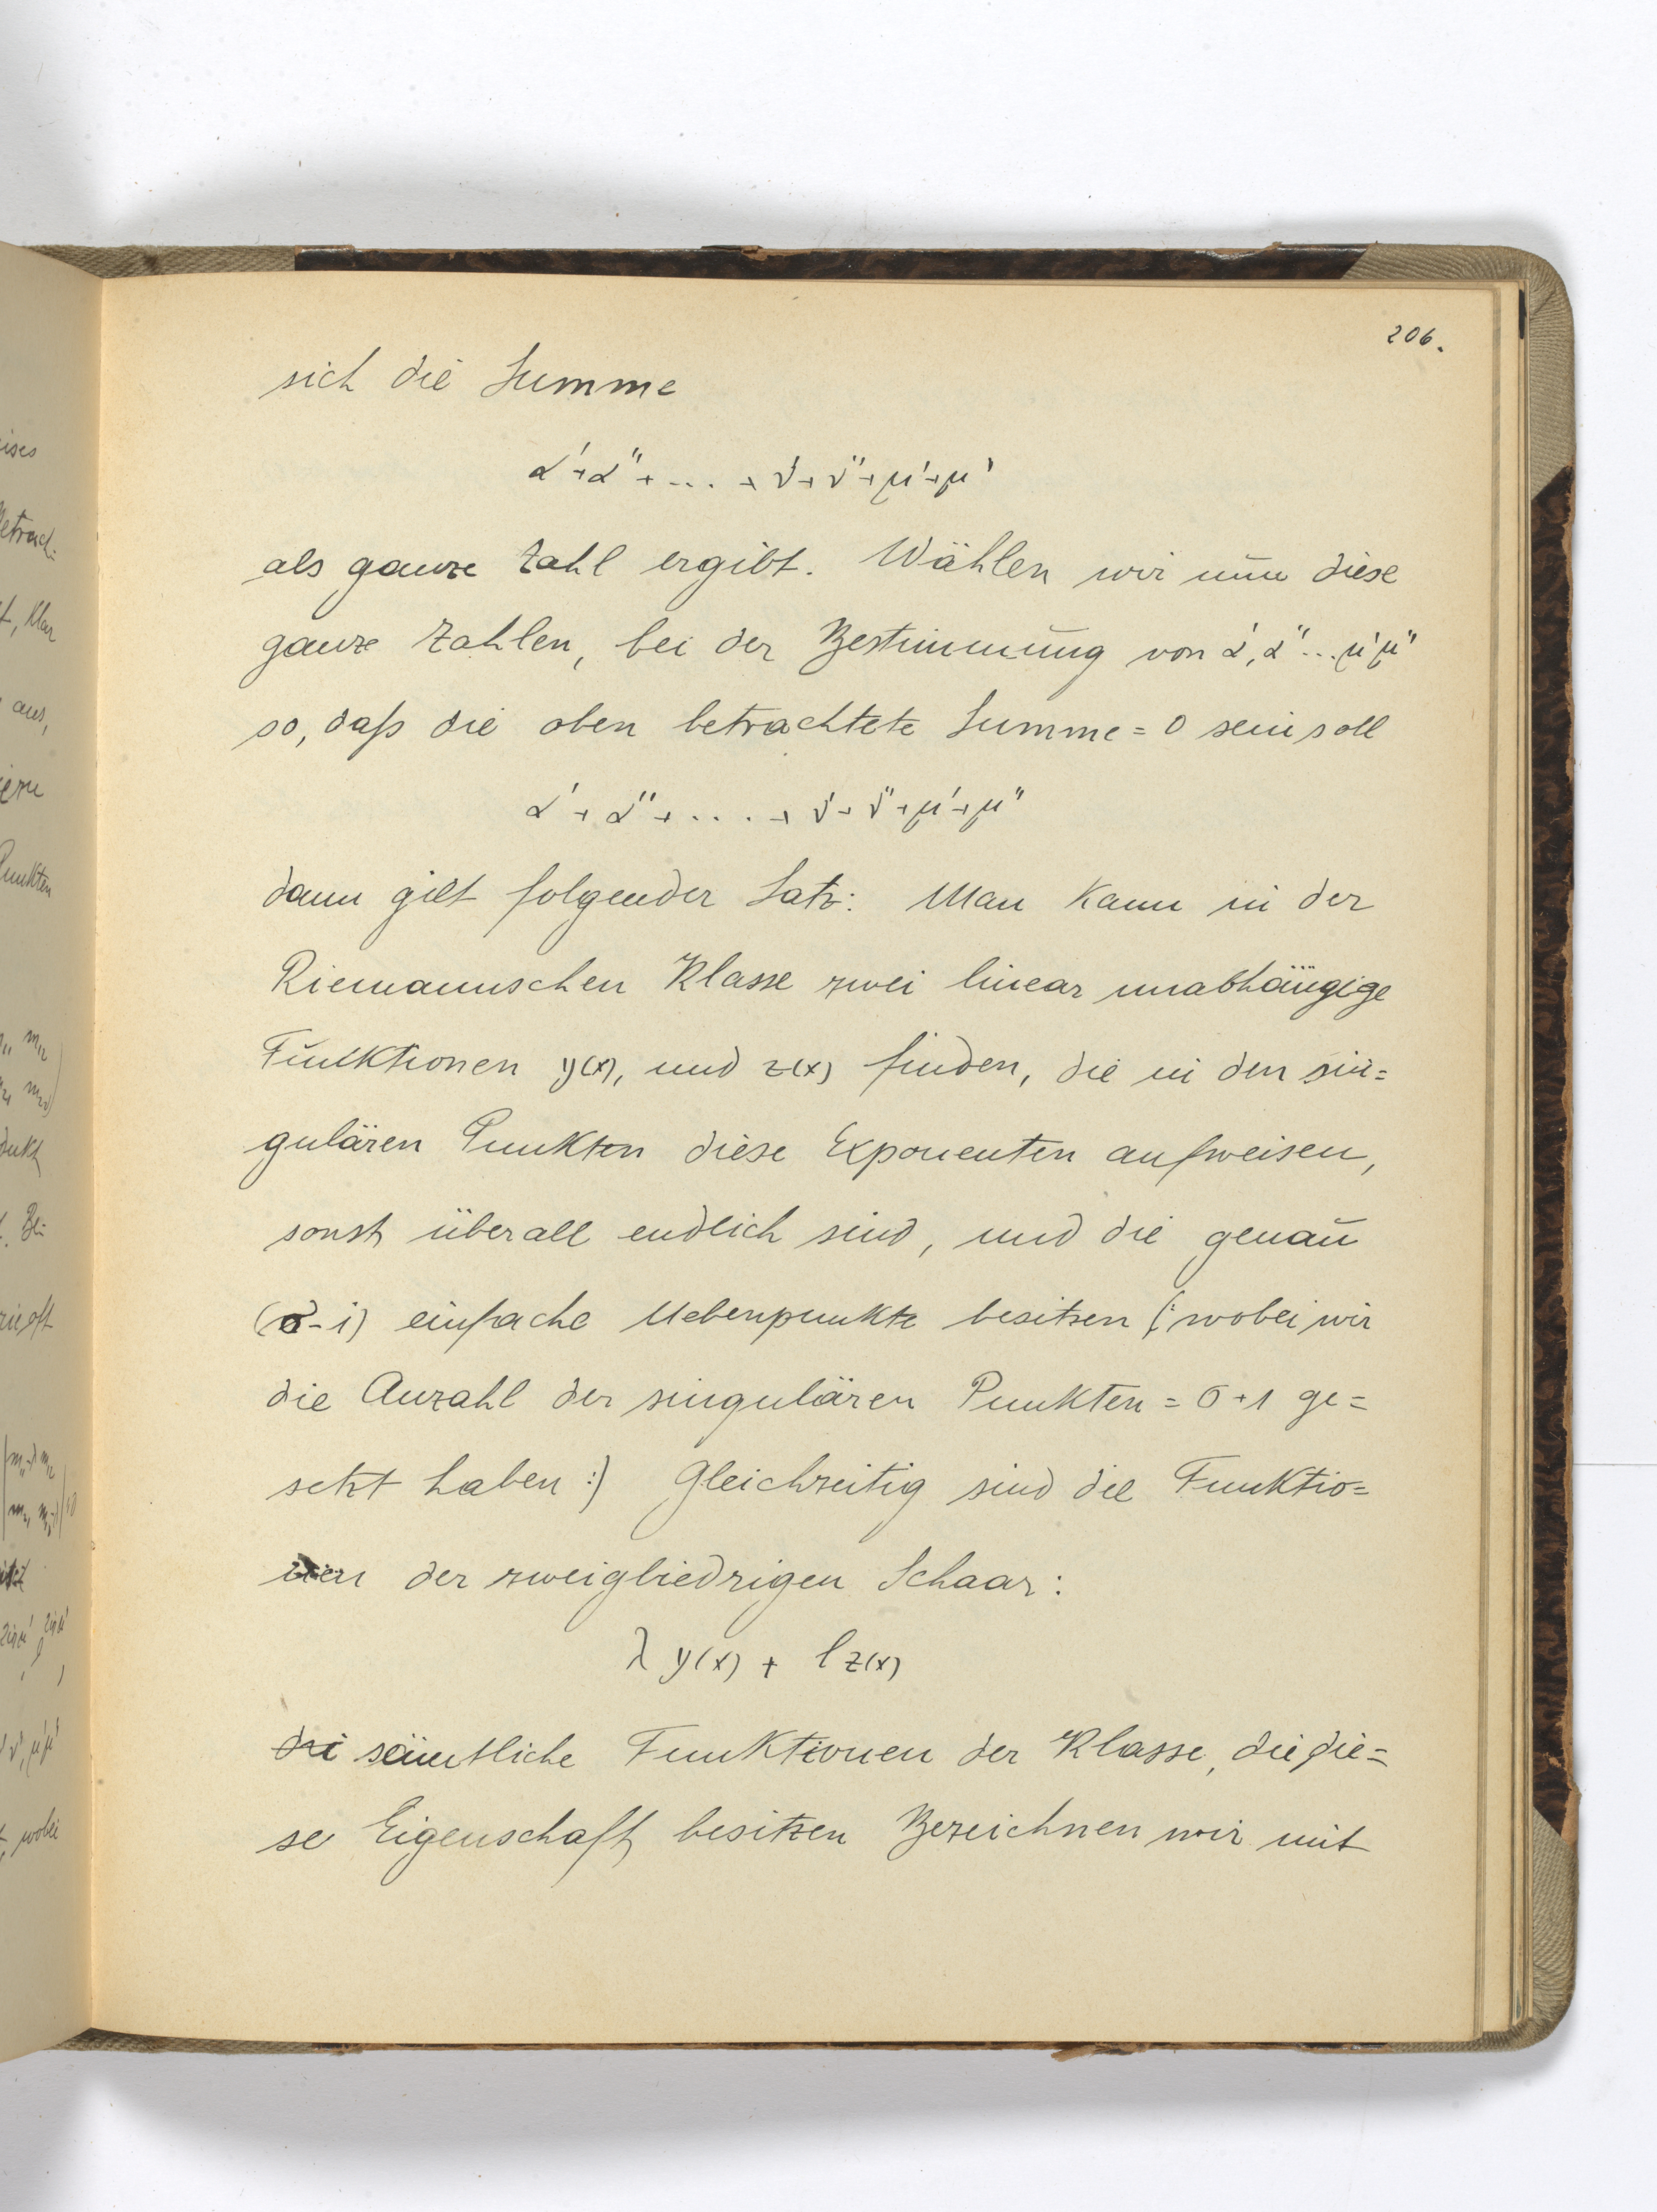 206.
sich die Summe
α'+α''+ . . . + ν'+ν''+μ'+μ'
als ganze Zahl ergibt. Wählen wir nun diese
ganze Zahlen, bei der Bestimmung von α', α''... μ' μ''
so, daß die oben betrachtete Summe = 0 sein soll
α' + α'' + . . . . + ν' + ν'' + μ' + μ''
dann gilt folgender Satz: Man kann in der
Riemannschen Klasse zwei linear unabhängige
Funktionen y(x), und z(x) finden, die in den sin=
gulären Punkten diese Exponenten aufweisen,
sonst überall endlich sind, und die genau
(σ-1) einfache Nebenpunkte besitzen (: wobei wir
die Anzahl der singulären Punkten = σ+1 ge=
setzt haben :) Gleichzeitig sind die Funktio=
nen der zweigliedrigen Schaar:
λ y(x) + l z(x)
sämtliche Funktionen der Klasse, die die=
se Eigenschaft besitzen Bezeichnen wir mit